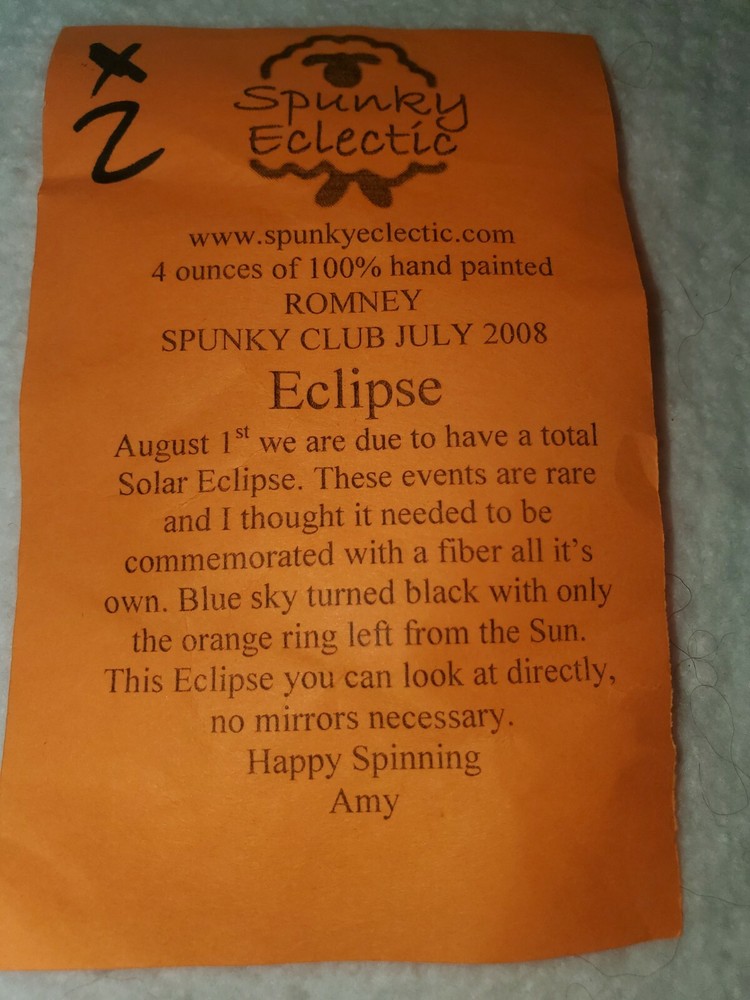 x
2
Spunky
Eclectic
www.spunkyeclectic.com
4 ounces of 100% hand painted
ROMNEY
SPUNKY CLUB JULY 2008
Eclipse
August 1st we are due to have a total
Solar Eclipse. These events are rare
and I thought it needed to be
commemorated with a fiber all it's
own. Blue sky turned black with only
the orange ring left from the Sun.
This Eclipse you can look at directly,
no mirrors necessary.
Happy Spinning
Amy